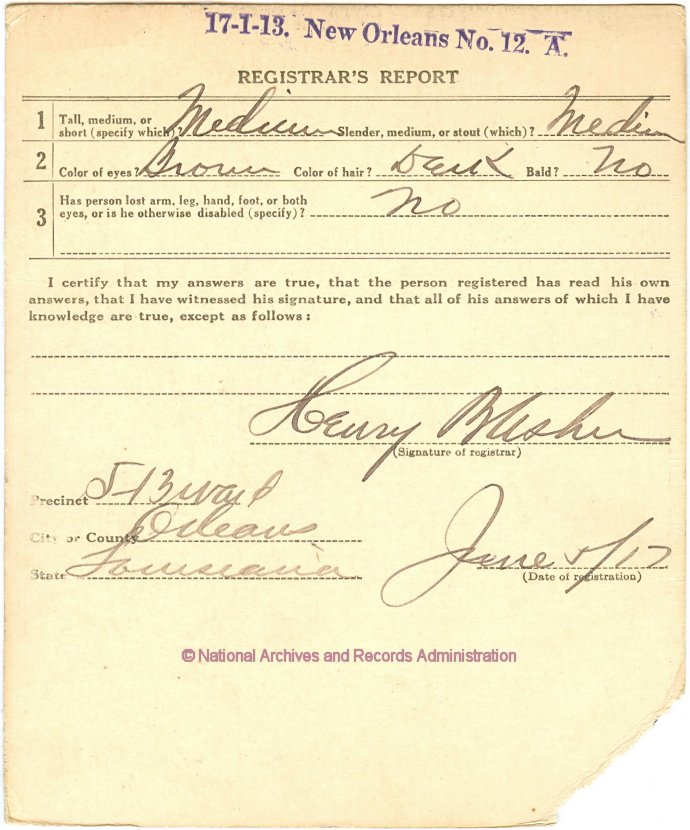 17-1-13. New Orleans No. 12. A.
REGISTRAR'S REPORT
1 Tall, medium, or short (specify which)? Medium Slender, medium, or stout (which)? Medium
2 Color of eyes? Brown Color of hair? Dark Bald? No
3 Has person lost arm, leg, hand, foot, or both
eyes, or is he otherwise disabled (specify)? No
I certify that my answers are true, that the person registered has read his own
answers, that I have witnessed his signature, and that all of his answers of which I have
knowledge are true, except as follows:
Henry
(Signature of registrar)
Precinct 5-13 Ward
City or County Orleans
State Louisiana
June 5/17
(Date of registration)
© National Archives and Records Administration